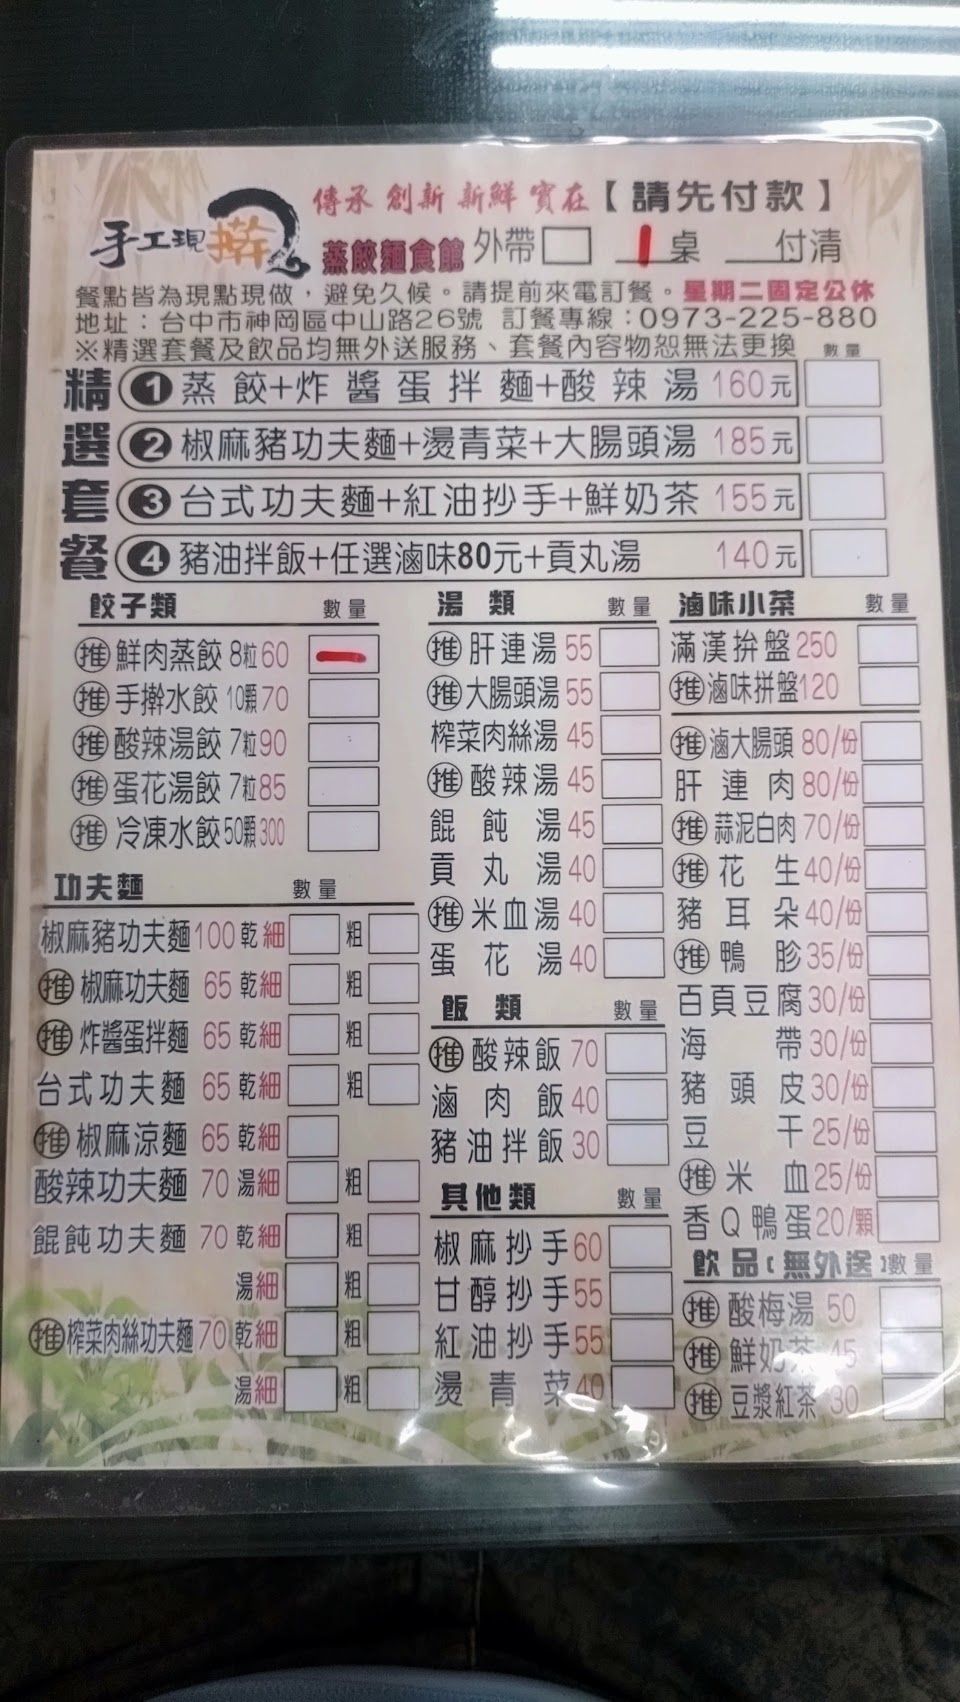 傳承 創新 新鮮 實在【請先付款】
手工現擀 蒸餃麵食館 外帶 1桌 付清
餐點皆為現點現做，避免久候。請提前來電訂餐。星期二固定公休
地址：台中市神岡區中山路26號 訂餐專線：0973-225-880
※精選套餐及飲品均無外送服務、套餐內容物恕無法更換 數量
精選套餐
1 蒸餃+炸醬蛋拌麵+酸辣湯 160元
2 椒麻豬功夫麵+燙青菜+大腸頭湯 185元
3 台式功夫麵+紅油抄手+鮮奶茶 155元
4 豬油拌飯+任選滷味80元+貢丸湯 140元
餃子類 數量
推 鮮肉蒸餃 8粒60
推 手擀水餃 10顆70
推 酸辣湯餃 7粒90
推 蛋花湯餃 7粒85
推 冷凍水餃 50顆300
功夫麵 數量
椒麻豬功夫麵100 乾細 粗
推 椒麻功夫麵 65 乾細 粗
推 炸醬蛋拌麵 65 乾細 粗
台式功夫麵 65 乾細 粗
推 椒麻涼麵 65 乾細
酸辣功夫麵 70 湯細 粗
餛飩功夫麵 70 乾細 粗
湯細 粗
推 榨菜肉絲功夫麵70 乾細 粗
湯細 粗
湯類 數量
推 肝連湯 55
推 大腸頭湯 55
榨菜肉絲湯 45
推 酸辣湯 45
餛飩湯 45
貢丸湯 40
推 米血湯 40
蛋花湯 40
飯類 數量
推 酸辣飯 70
滷肉飯 40
豬油拌飯 30
其他類 數量
椒麻抄手60
甘醇抄手55
紅油抄手55
燙青菜40
滷味小菜 數量
滿漢拚盤250
推 滷味拼盤120
推 滷大腸頭 80/份
肝連肉 80/份
推 蒜泥白肉 70/份
推 花生 40/份
豬耳朵 40/份
推 鴨胗 35/份
百頁豆腐 30/份
海帶 30/份
豬頭皮 30/份
豆干 25/份
推 米血 25/份
香Q鴨蛋 20/顆
飲品(無外送) 數量
推 酸梅湯 50
推 鮮奶茶 45
推 豆漿紅茶 30